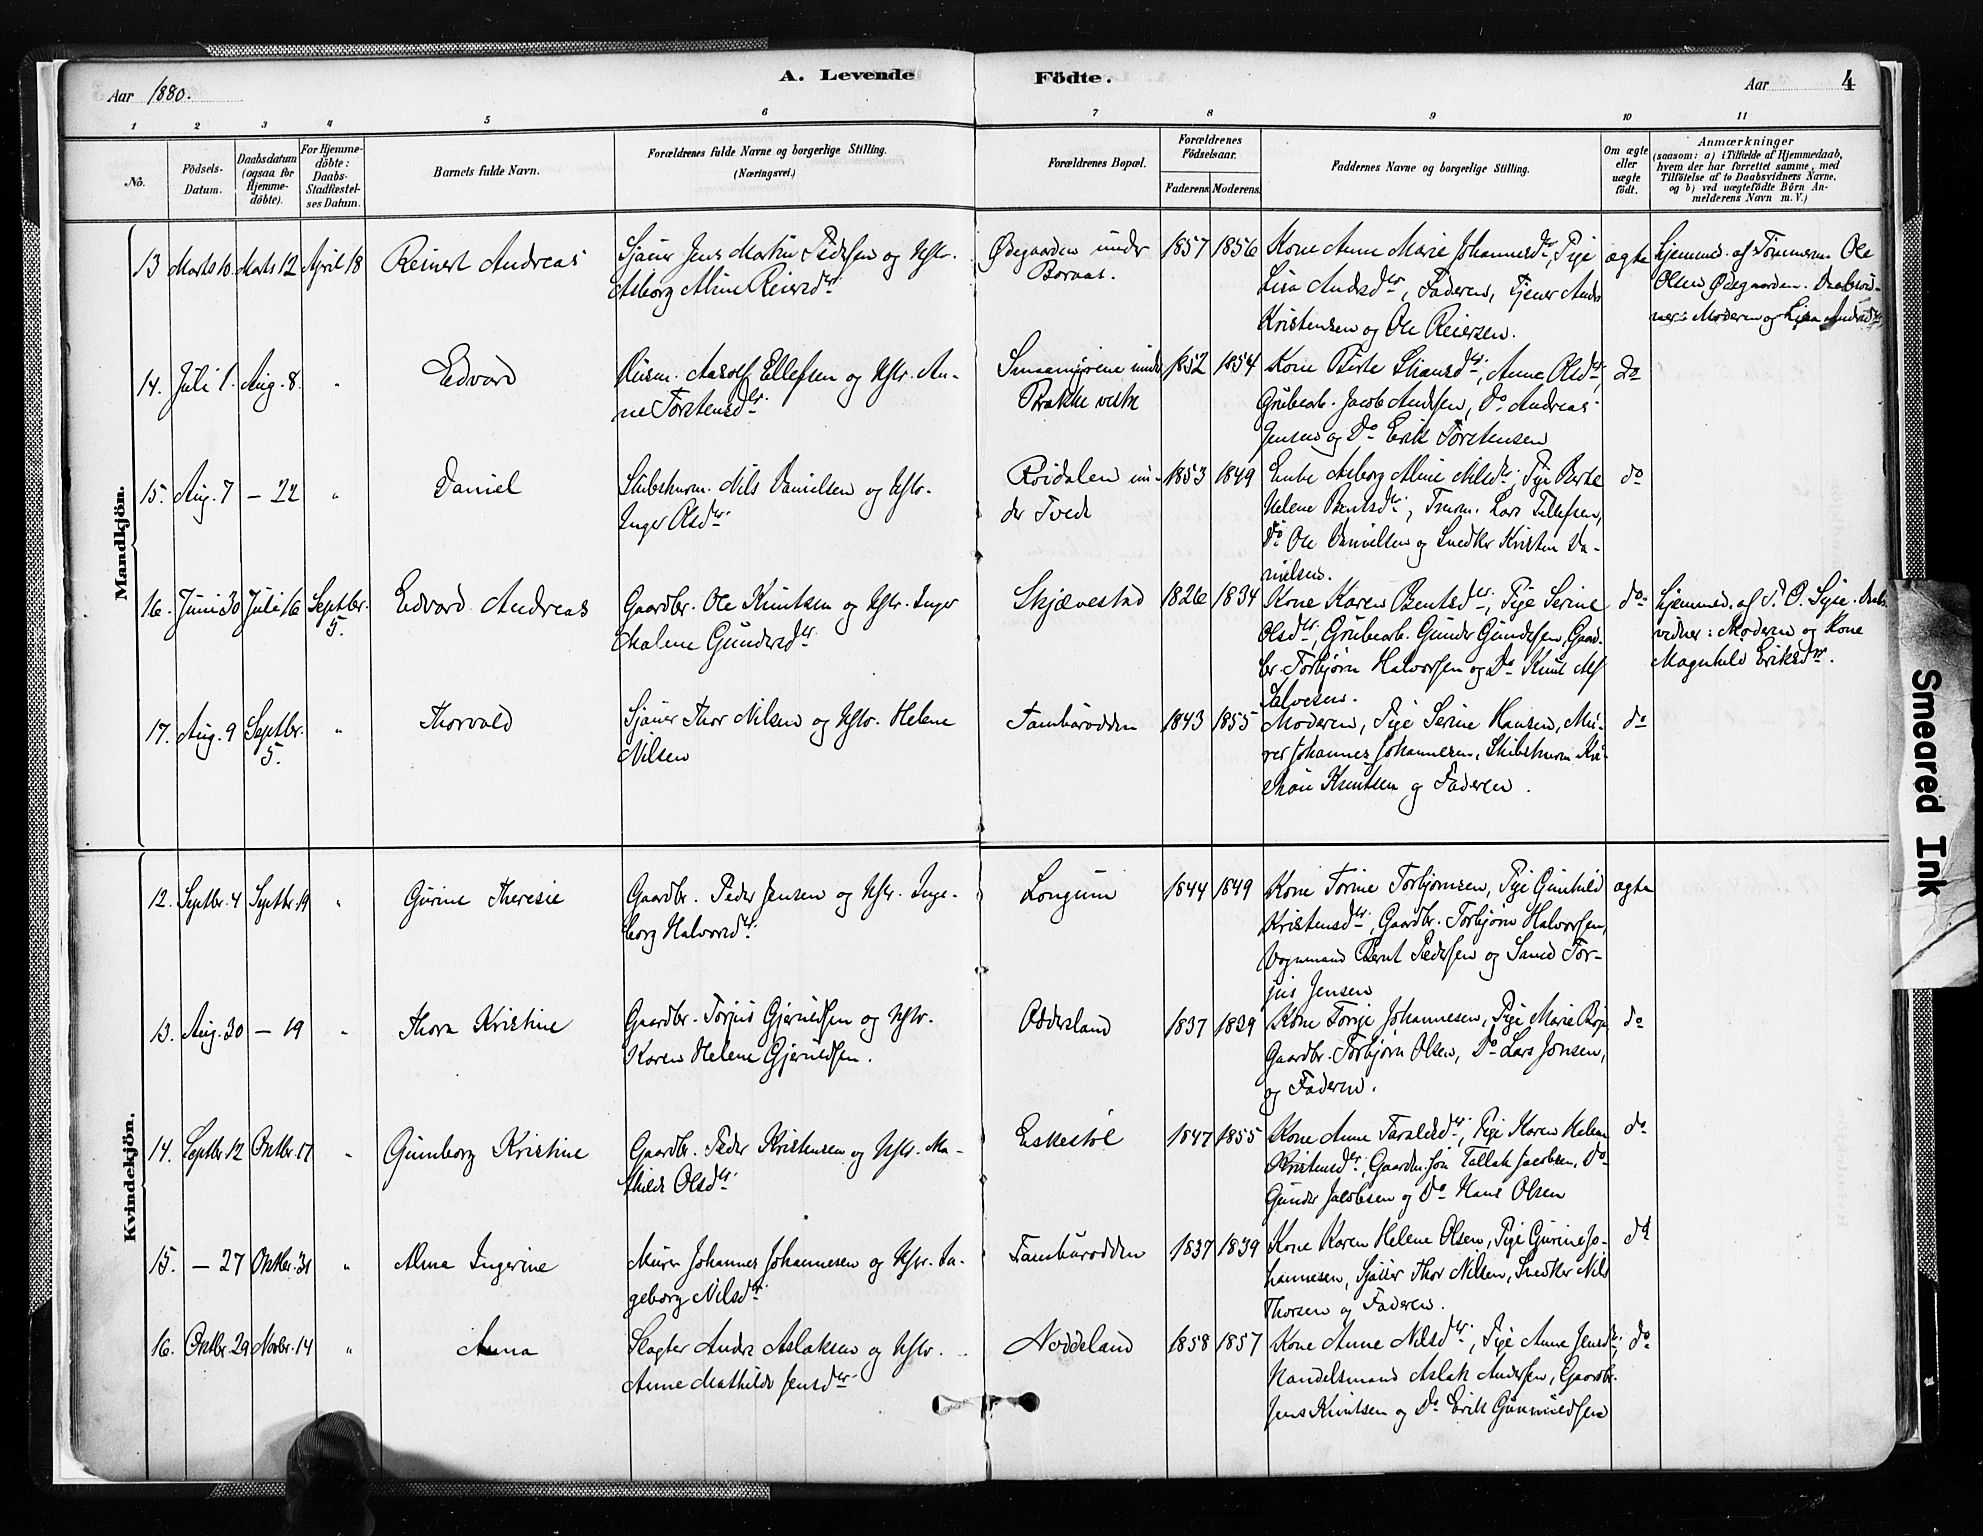 Aar 1880.
A. Levende
Födte.
Aar
4
1
2
3
4
5
6
7
8
9
10
11
No.
Födsels-
Datum.
Daabsdatum
(ogsaa for
Hjemme-
döbte).
For Hjemme-
döbte:
Daabs-
Stadfæstel-
ses Datum.
Barnets fulde Navn.
Forældrenes fulde Navne og borgerlige Stilling.
(Næringsvei.)
Forældrenes Bopæl.
Forældrenes
Födselsaar.
Faderens
Moderens.
Faddernes Navne og borgerlige Stilling.
Om ægte
eller
uægte
födt.
Anmærkninger
(saasom: a) i Tilfælde af Hjemmedaab,
hvem der har forrettet samme, med
Tilföielse af to Daabsvidners Navne,
og b) ved uægtefödte Börn An-
melderens Navn m. V.)
Mandkjön.
13
Marts 10.
Marts 12
April 18
Reinert Andreas
Sjöuer Jens Martin Pedersen og Hstr.
Asborg Aline Reiersdr.
Ødegaarden under
Boraas.
1857
1856
Kone Anne Marie Johannesdr, Pige
Lisa Andsdr, Faderen, Tjener Ands
Kristensen og Ole Reiersen.
ægte
Hjemmed. af Tömmerm. Ole
Olsen Ødegaarden. Daabsvid-
ner: Moderen og Lisa Andsdr
14.
Juli 1.
Aug. 8.
"
Edvard
Husm. Aasolf Ellefsen og Hstr. An-
ne Torstensdr.
Smaamyrene under
Brække vestre
1852
1854
Kone Birte, Anne Olsdr,
Grübearb. Jacob Andersen, Do Andreas
Jensen og Do Erik Torstensen
Do
15.
Aug. 7
— 22
"
Daniel
Skibstmrm. Nils Danielsen og Hstr.
Inger Olsdr.
Röidalen un-
der Tvede
1853
1849
Enke Asborg Aline Nilsdr, Pige Berte
Helene Bentsdr, Tmrm. Lars Tellefsen,
Do Ole Danielsen og Snedker Kristen Da-
nielsen.
do
16.
Juni 30
Juli 16
Septbr.
5.
Edvard Andreas
Gaardbr. Ole Knutsen og Hstr. Inger
Malene Gundersdr.
Skjævestad
1826
1834
Kone Karen Bentsdr, Pige Serine
Olsdr, Grübearb. Gunder Gundersen, Gaard-
br. Torbjörn Halvorsen og Do Knut Alf
Salvesen.
do
Hjemmed. af P. O. Lyse. Daabs-
vidner: Moderen og Kone
Magnhild Eriksdr.
17.
Aug. 9
Septbr.
5.
"
Thorvald
Sjöuer Thor Nilsen og Hstr. Helene
Nilsen
Tambürodden
1843
1855
Moderen, Pige Serine Hansen, Mu-
rer Johannes Johannesen, Skibstmrm. Kri-
stian Knutsen og Faderen.
do
Kvindekjön.
12.
Septbr. 4
Septbr. 19
"
Gürine Theresie
Gaardbr. Peder Jensen og Hstr. Inge-
borg Halvorsdr.
Longum
1844
1849
Kone Torine Torbjörnsen, Pige Gunhild
Kristensdr, Gaardbr. Torbjörn Halvorsen,
Vognmand Bernt Pedersen og Sand Tor-
jus Jensen
ægte
13.
Aug. 30
— 19
"
Thora Kristine
Gaardbr. Torjus Gjeruldsen og Hstr.
Karen Helene Gjeruldsen.
Oddersland
1837
1839
Kone Torine Johannesen, Pige Marie
Gaardbr. Torbjörn Olsen, Do Lars Jonsen,
og Faderen.
do
14.
Septbr. 12
Oktbr. 17
"
Gunborg Kristine
Gaardbr. Peder Kristensen og Hstr. Ma-
thilde Olsdr.
Eskestöl
1847
1855
Kone Anne Taraldsdr, Pige Karen Helene
Kristensdr, Gaardm.sön Tallak Jacobsen, Do
Gunder Jacobsen og Do Hans Olsen
do
15.
— 27
Oktbr. 31
"
Alma Ingerine
Murer Johannes Johannesen og Hstr. In-
geborg Nilsdr.
Tambürodden
1837
1839
Kone Karen Helene Olsen, Pige Gurine Jo-
hannesen, Sjöuer Thor Nilsen, Snedker Nils
Thorsen og Faderen.
do
16.
Oktbr. 29
Novbr. 14
"
Anna
Slagter Andr. Aslaksen og Hstr.
Anne Mathilde Jensdr.
Noddeland
1858
1857
Kone Anne Nilsdr, Pige Anne Jensdr,
Handelsmand Aslak Andersen, Gaardbr.
Jens Knutsen og Do Erik Gunvaldsen
do
Smeared Ink